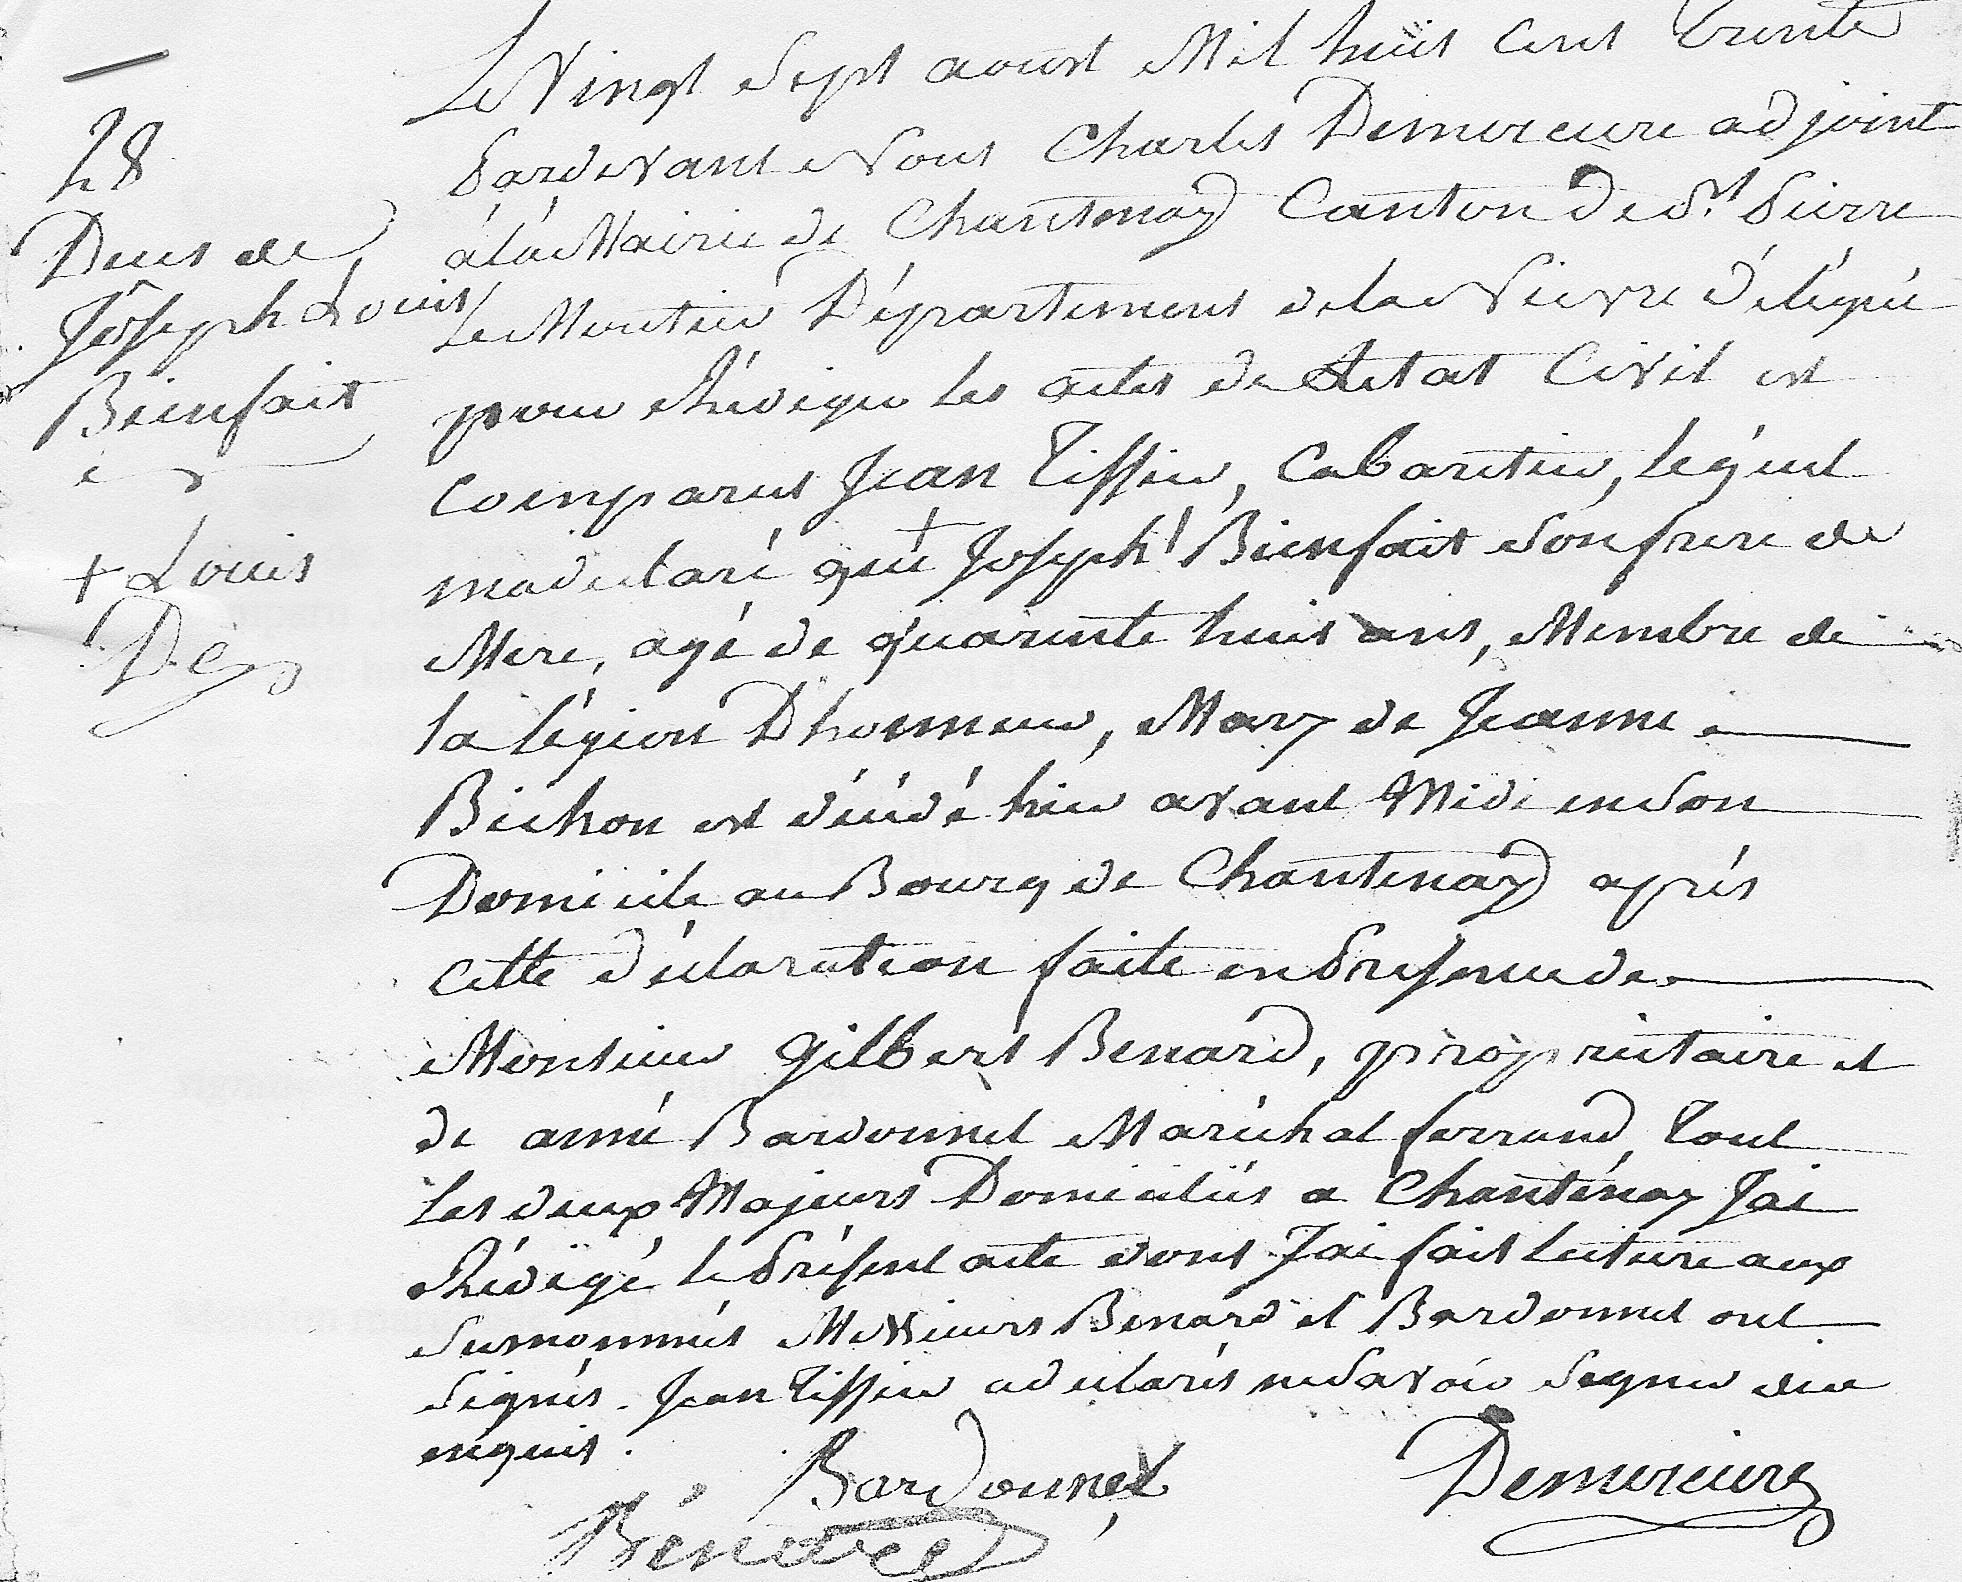 28
Deces de
Joseph Louis
Bienfait
+ Louis
De
Le Vingt Sept aoust Mil huit Cent Trente
Pardevant Nous Charles Demercure adjoint
à la Mairie de Chantenay Canton de St. Pierre
Le Moutier Département de la Nievre délégué
pour Rédiger les actes de Letat Civil est
Comparut Jean Tissier, Cabaretier, lequel
ma déclaré que + Joseph Bienfait Son frere de
Mere, agé de quarente huit ans, Membre de
la légion Dhonneur, Mary de Jeanne
Bichon est décédé hier avant Midi en Son
Domicile au Bourg de Chantenay après
cette déclaration faite en Presence de
Monsieur Gilbert Benard, propriétaire et
de amé Bardonnet Maréchal ferrand, tout
Les deux Majeurs Domiciliés a Chantenay Jai
Rédigé le Présent acte dont Jai fait Lecture aux
Surnommés Messieurs Benard et Bardonnet ont
Signés. Jean Tissier a declarés ne Savoir Signer de ce
enquis.
Bardonnet
Demercure
Bénard